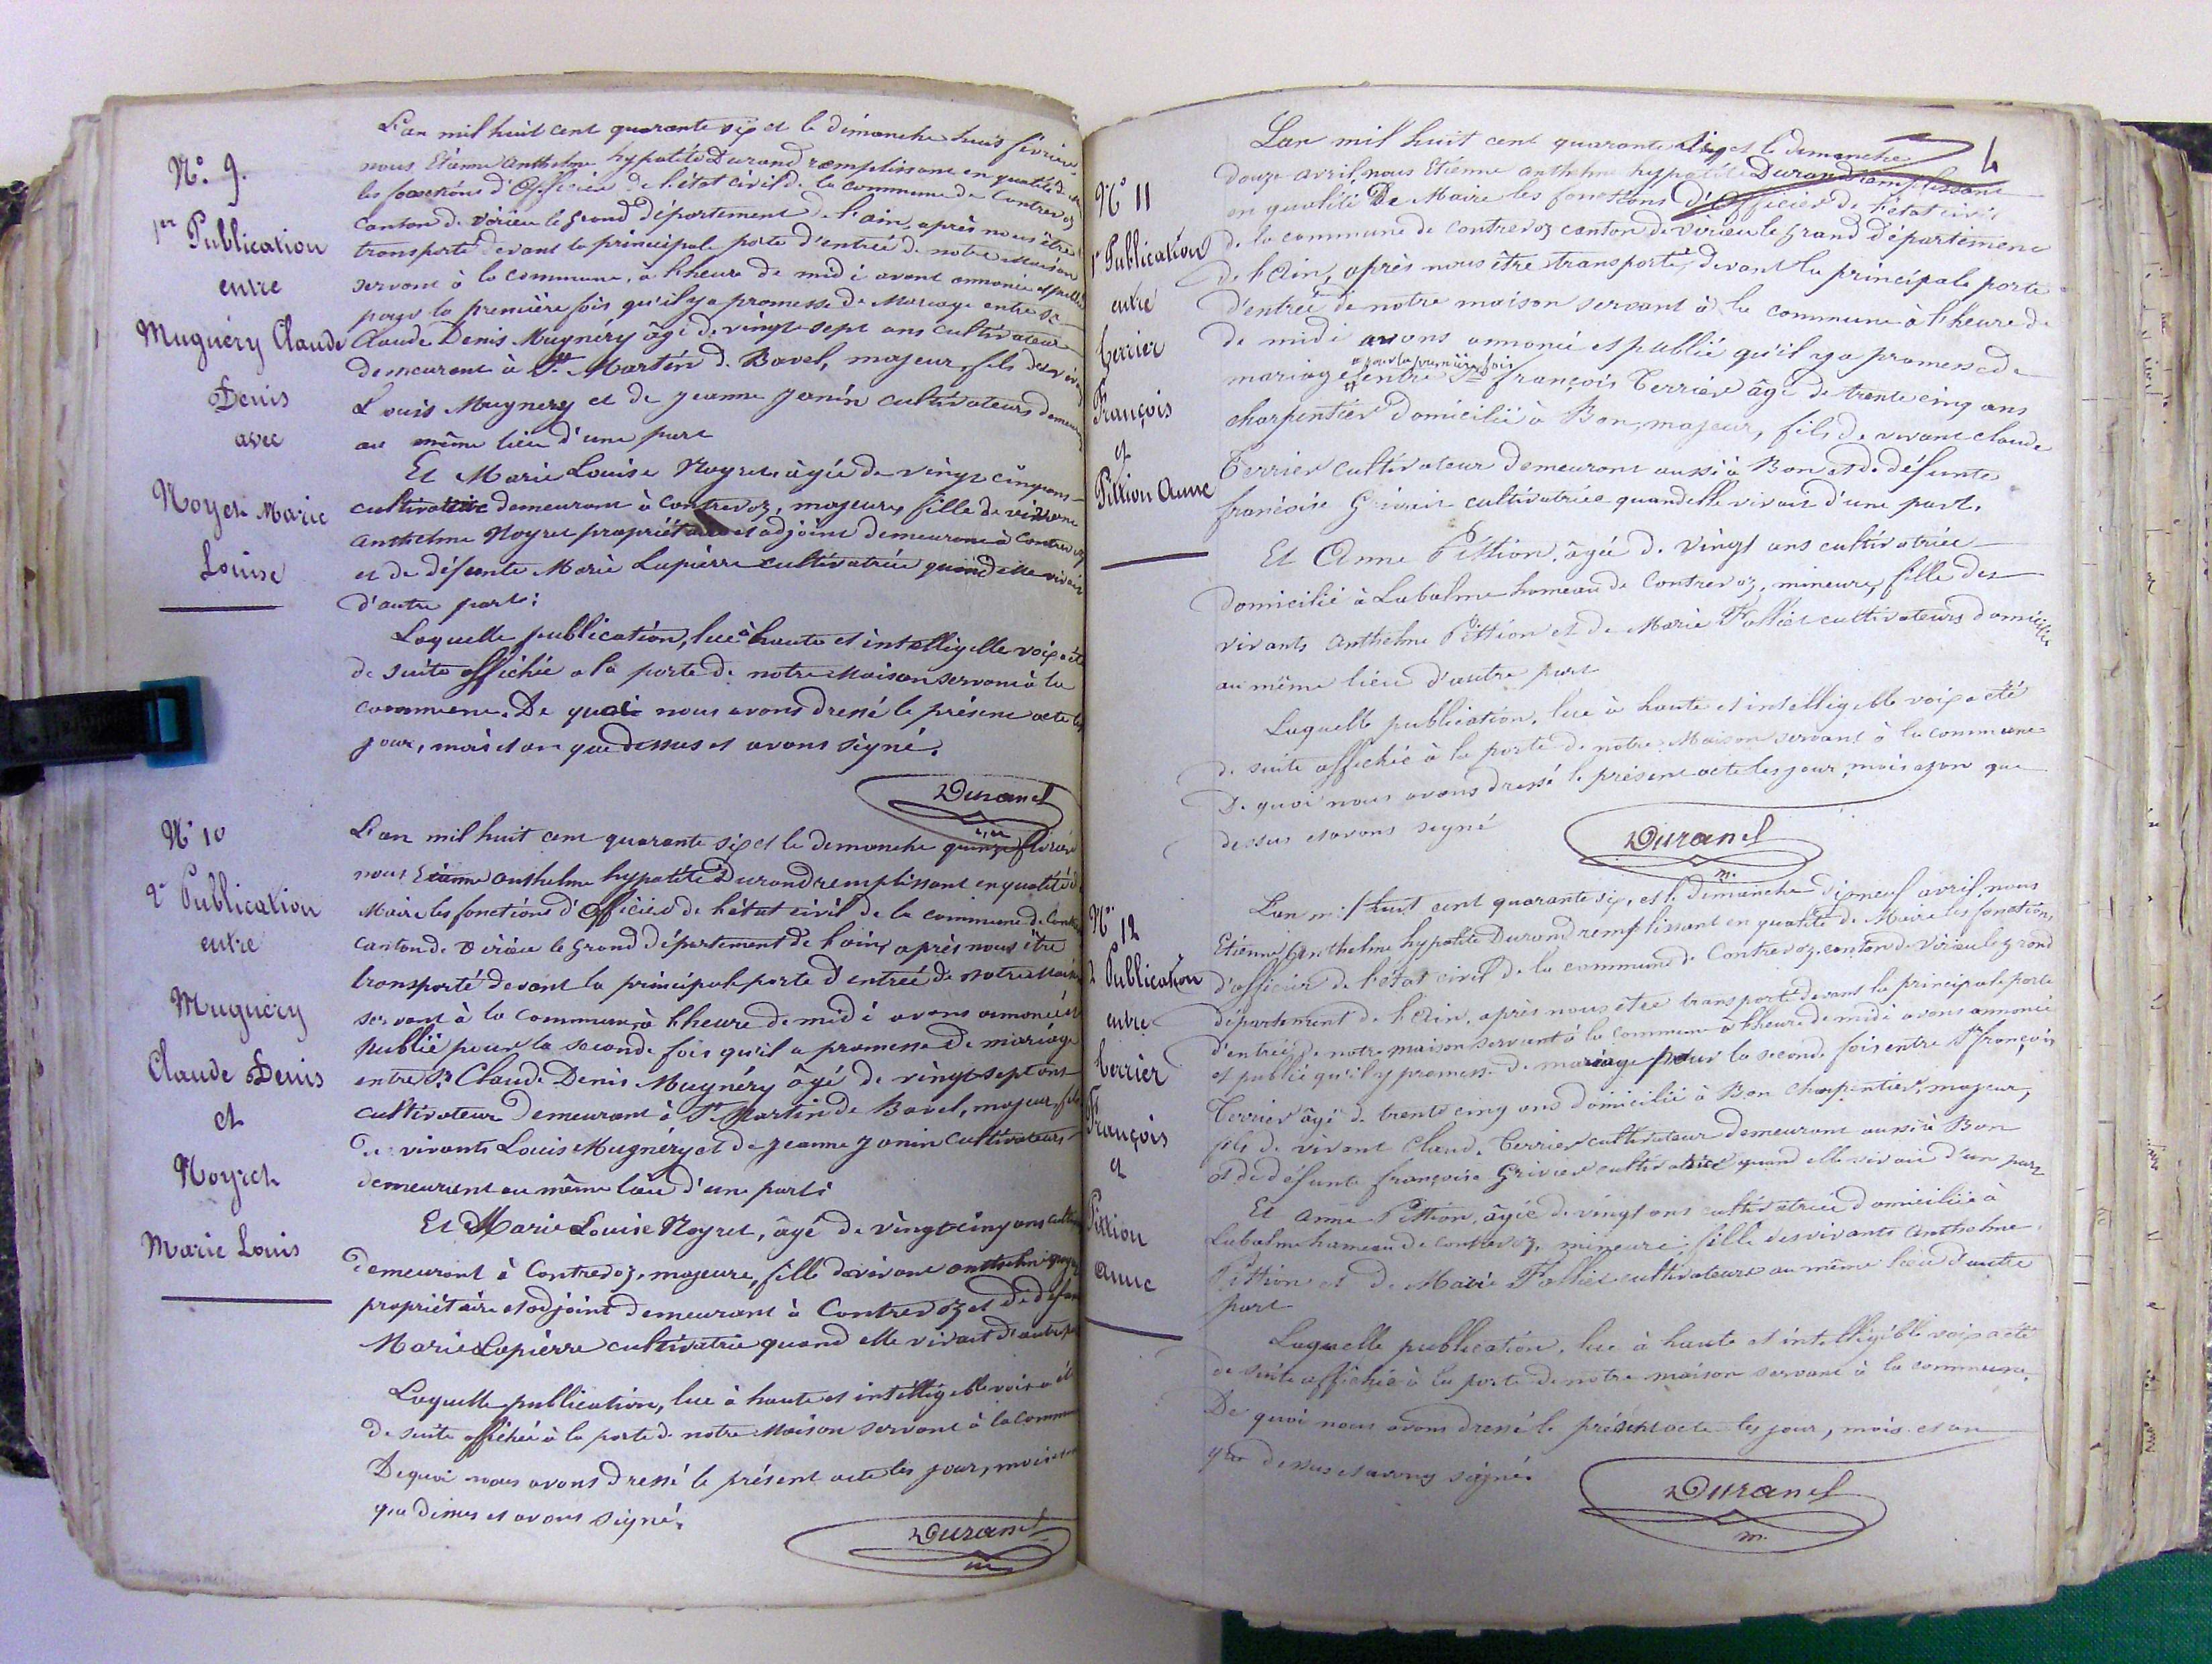 N°. 9.
1er Publication
entre
Mugnéry Claude
Denis
avec
Noyret Marie
Louise
L'an mil huit cent quarante six et le dimanche huit février
nous Etienne anthelme hypolite Durand remplissant en qualité de
les fonctions d'Officier de l'état civil de la commune de Contrevoz
canton de virieu le grand département de l'ain, après nous être
transporté devant la principale porte d'entrée de notre Maison
servant à la commune, à l'heure de midi avons annoncé et publié
pour la première fois qu'il y a promesse de Mariage entre Sr
Claude Denis Mugnéry âgé de vingt-sept ans cultivateur
demeurant à St. Martin de Bavel, majeur, fils de vivants
Louis Mugnery et de jeanne janin cultivateurs demeurant
au même lieu d'une part
Et Marie Louise Noyret âgée de vingt cinq ans
cultivatrice demeurant à Contrevoz, majeure, fille de vivant
anthelme Noyret propriétaire et adjoint demeurant à Contrevoz
et de défunte Marie Lapierre cultivatrice quand elle vivait
d'autre part;
Laquelle publication, lue à haute et intelligible voix a été
de suite affichée a la porte de notre Maison servant à la
commune. De quoi nous avons dressé le présent acte les
jour, mois et an que dessus et avons signé.
Durand
m
N° 10
2e Publication
entre
Mugnéry
Claude Denis
et
Noyret
Marie Louis
L'an mil huit cent quarante six et le dimanche quinze février
nous Etienne anthelme hypolite Durand remplissant en qualité de
Maire les fonctions d'Officier de l'état civil de la commune de
canton de virieu le Grand département de l'ain, après nous être
transporté devant la principale porte d'entrée de notre Maison
servant à la commune, à l'heure de midi avons annoncé et
publié pour la seconde fois qu'il a promesse de mariage
entre Sr Claude Denis Mugnéry âgé de vingt-sept ans
cultivateur demeurant à St Martin de Bavel, majeur, fils
de vivants Louis Mugnéry et de jeanne janin cultivateurs
demeurant au même lieu d'une part;
Et Marie Louise Noyret, âgé de vingt cinq ans
demeurant à Contrevoz, majeure, fille de vivant anthelme
propriétaire et adjoint demeurant à Contrevoz et de
Marie Lapierre cultivatrice quand elle vivait d'autre part
Laquelle publication, lue à haute et intelligible voix a été
de suite affichée à la porte de notre Maison servant à la
De quoi nous avons dressé le présent acte les jour, mois et an
que dessus et avons signé.
Durand
m
4
N° 11
1e Publication
entre
Terrier
François
et
Pittion Anne
L'an mil huit cent quarante six et le dimanche
douze avril, nous Etienne anthelme hypolite Durand remplissant
en qualité De Maire les fonctions d'Officier de l'état civil
de la commune de contrevoz canton de Virieu le grand département
de l'Ain, après nous être transporté, devant la principale porte
d'entrée de notre maison servant à la commune à l'heure de
de midi avons annoncé et publié qu'il y a promesse de
pour la première fois
mariage entre Sr françois Terrier âgé de trente cinq ans
charpentier domicilié à Bon, majeur, fils de vivant claude
Terrier cultivateur demeurant aussi à Bon et de défunte
françoise cultivatrice quand elle vivait d'une part.
Et Anne Pittion, âgée de vingt ans cultivatrice
domicilié à Labalme hameau de Contrevoz, mineure, fille des
vivants anthelme Pittion et de Marie Folliet cultivateurs domiciliés
au même lieu d'autre part
Laquelle publication, lue à haute et intelligible voix a été
de suite affichée à la porte de notre Maison servant à la commune
De quoi nous avons dressé le présent acte les jour, mois et an que
dessus et avons signé
Durand
m.
N° 12
2 Publication
entre
Terrier
François
et
Pittion
anne
L'an mil huit cent quarante six, et le dimanche dixneuf avril, nous
Etienne Anthelme hypolite Durand remplissant en qualité de Maire les fonctions
d'officier de l'état civil de la commune de Contrevoz, canton de Virieu le grand
département de l'Ain, après nous être transporté devant la principale porte
d'entrée de notre maison servant à la commune à l'heure de midi avons annoncé
et publié qu'il y promesse de mariage pour la seconde fois entre Sr françois
Terrier âgé de trente cinq ans domicilié à Bon charpentier, majeur,
fils de vivant Claude Terrier cultivateur demeurant aussi à Bon
et de défunte françoise Grivier cultivatrice quand elle vivait d'un part
Et anne Pittion, âgée de vingt ans cultivatrice domiciliée à
Labalme hameau de contrevoz, mineure, fille des vivants anthelme
Pittion et de Marie Folliet cultivateurs au même lieu d'autre
part
Laquelle publication, lue à haute et intelligible voix a été
de suite affichée à la porte de notre maison servant à la commune.
De quoi nous avons dressé le présent acte les jour, mois et an
que dessus et avons signé.
Durand
m.